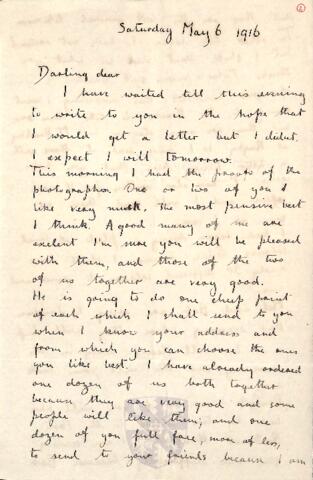 6
Saturday May 6 1916
Darling dear
I have waited till this evening
to write to you in the hope that
I would get a letter but I didnt.
I expect I will tomorrow.
This morning I had the proofs of the
photographer. One or two of you I
like very much, the most pensive best
I think. A good many of me are
exelent I'm sure you will be pleased
with them, and those of the two
of us together are very good.
He is going to do one cheap print
of each which I shall send to you
when I know your address and
from which you can choose the ones
you like best. I have already ordered
one dozen of us both together
because they are very good and some
people will like them; and one
dozen of you full face, more or less,
to send to your friends becaus I am